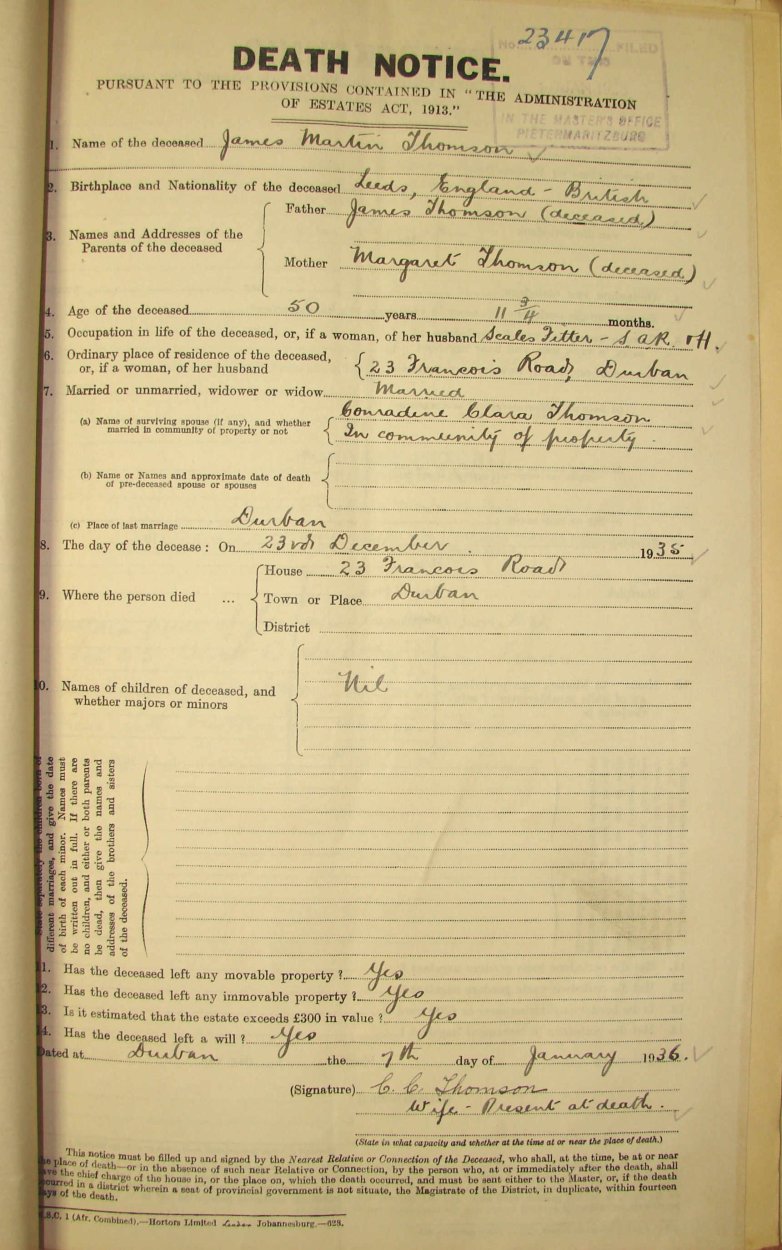 23417
DEATH NOTICE.
PURSUANT TO THE PROVISIONS CONTAINED IN "THE ADMINISTRATION
OF ESTATES ACT, 1913."
FILED
IN THE MASTER'S OFFICE
PIETERMARITZBURG
1. Name of the deceased James Martin Thomson
2. Birthplace and Nationality of the deceased Leeds, England - British
3. Names and Addresses of the Parents of the deceased
Father James Thomson (deceased)
Mother Margaret Thomson (deceased)
4. Age of the deceased 50 years 11 3/4 months.
5. Occupation in life of the deceased, or, if a woman, of her husband Scales Fitter - S A R. & H.
6. Ordinary place of residence of the deceased, or, if a woman, of her husband
23 Francois Road, Durban
7. Married or unmarried, widower or widow Married
(a) Name of surviving spouse (if any), and whether married in community of property or not
Conradene Clara Thomson
In community of property.
(b) Name or Names and approximate date of death
of pre-deceased spouse or spouses
(c) Place of last marriage Durban
8. The day of the decease : On 23rd December 1935
9. Where the person died ...
House 23 Francois Road
Town or Place Durban
District
0. Names of children of deceased, and
whether majors or minors
Nil
different marriages, and give the date
of birth of each minor. Names must
be written out in full. If there are
no children, and either or both parents
be dead, then give the names and
addresses of the brothers and sisters
of the deceased.
1. Has the deceased left any movable property ? Yes
2. Has the deceased left any immovable property ? Yes
3. Is it estimated that the estate exceeds £300 in value ? Yes
4. Has the deceased left a will ? Yes
Dated at Durban the 7th day of January 1936.
(Signature) C. C. Thomson
Wife - Present at death.
(State in what capacity and whether at the time at or near the place of death.)
This notice must be filled up and signed by the Nearest Relative or Connection of the Deceased, who shall, at the time, be at or near
the place of death—or in the absence of such near Relative or Connection, by the person who, at or immediately after the death, shall
have the chief charge of the house in, or the place on, which the death occurred, and must be sent either to the Master, or, if the death
occurred in a district wherein a seat of provincial government is not situate, the Magistrate of the District, in duplicate, within fourteen
days of the death.
S.C. 1 (Afr. Combined).—Hortors Limited Johannesburg.—628.